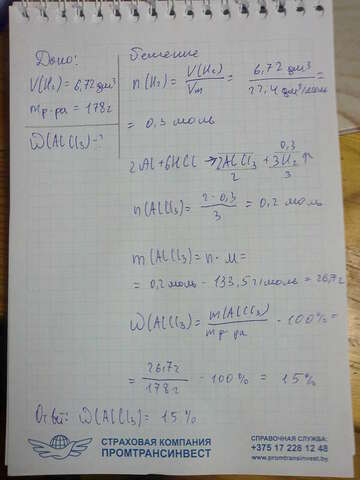 Дано:
V(H₂) = 6,72 дм³
mр-ра = 178 г
ω(AlCl₃) - ?
Решение
n(H₂) = V(H₂)/Vm = 6,72 дм³/22,4 дм³/моль =
= 0,3 моль
0,3
2Al + 6HCl → 2AlCl₃ + 3H₂↑
2 3
n(AlCl₃) = 2·0,3/3 = 0,2 моль
m(AlCl₃) = n · M =
= 0,2 моль · 133,5 г/моль = 26,7 г
ω(AlCl₃) = m(AlCl₃)/mр-ра · 100% =
= 26,7 г/178 г · 100% = 15%
Ответ: ω(AlCl₃) = 15%
СТРАХОВАЯ КОМПАНИЯ
ПРОМТРАНСИНВЕСТ
СПРАВОЧНАЯ СЛУЖБА:
+375 17 228 12 48
www.promtransinvest.by